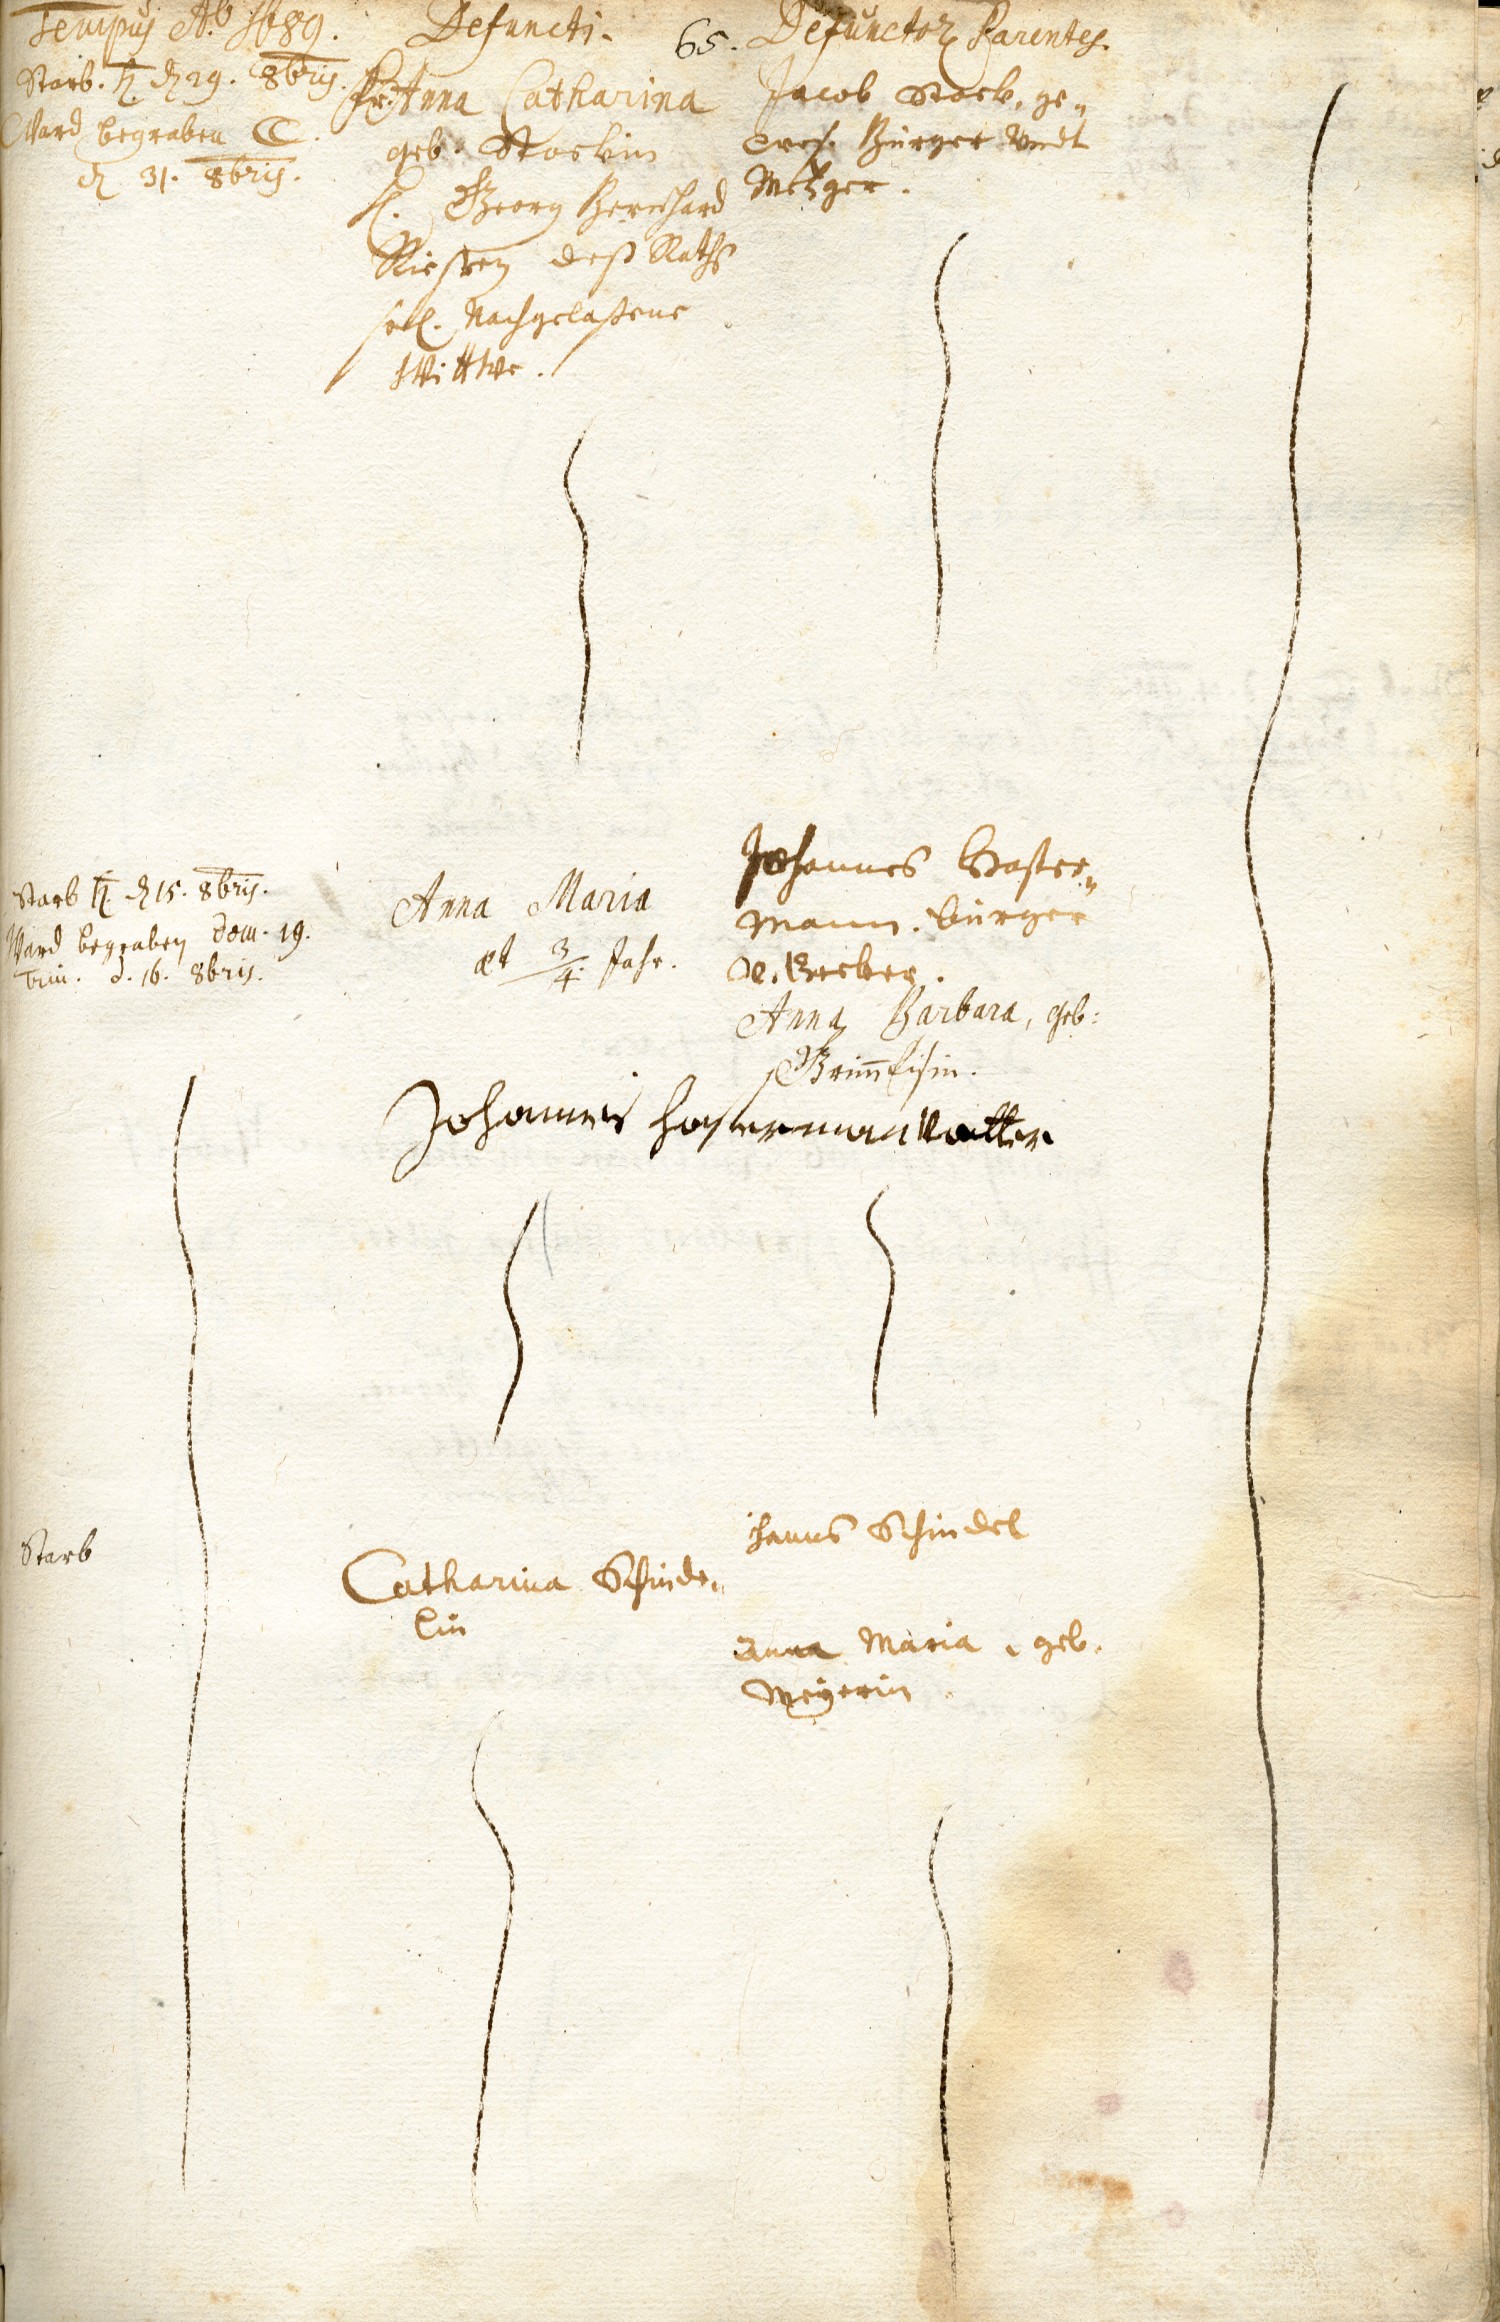 Tempus Aõ. 1689.
Defuncti.
65.
Defunctor. Parentes.
Starb. ♄. d 29. 8bris.
Ward begraben ☾.
d 31. 8bris.
Fr. Anna Catharina
geb. Stockin
H. Georg Bernhard
deß Raths
seel. Nachgelaßene
Wittwe.
Jacob Stock, ge-
wes. Burger undt
Metzger.
Starb ♄. d 15. 8bris.
Ward begraben Dom. 19.
Trin. d. 16. 8bris.
Anna Maria
æt 3/4. Jahr.
Johannes Haster-
mann. burger
V. Becker.
Anna Barbara, geb:
Johannes hasterman Vatter
Starb
Catharina Schinde-
lin
Hanns Schindel
Anna Maria, geb.
Meÿerin